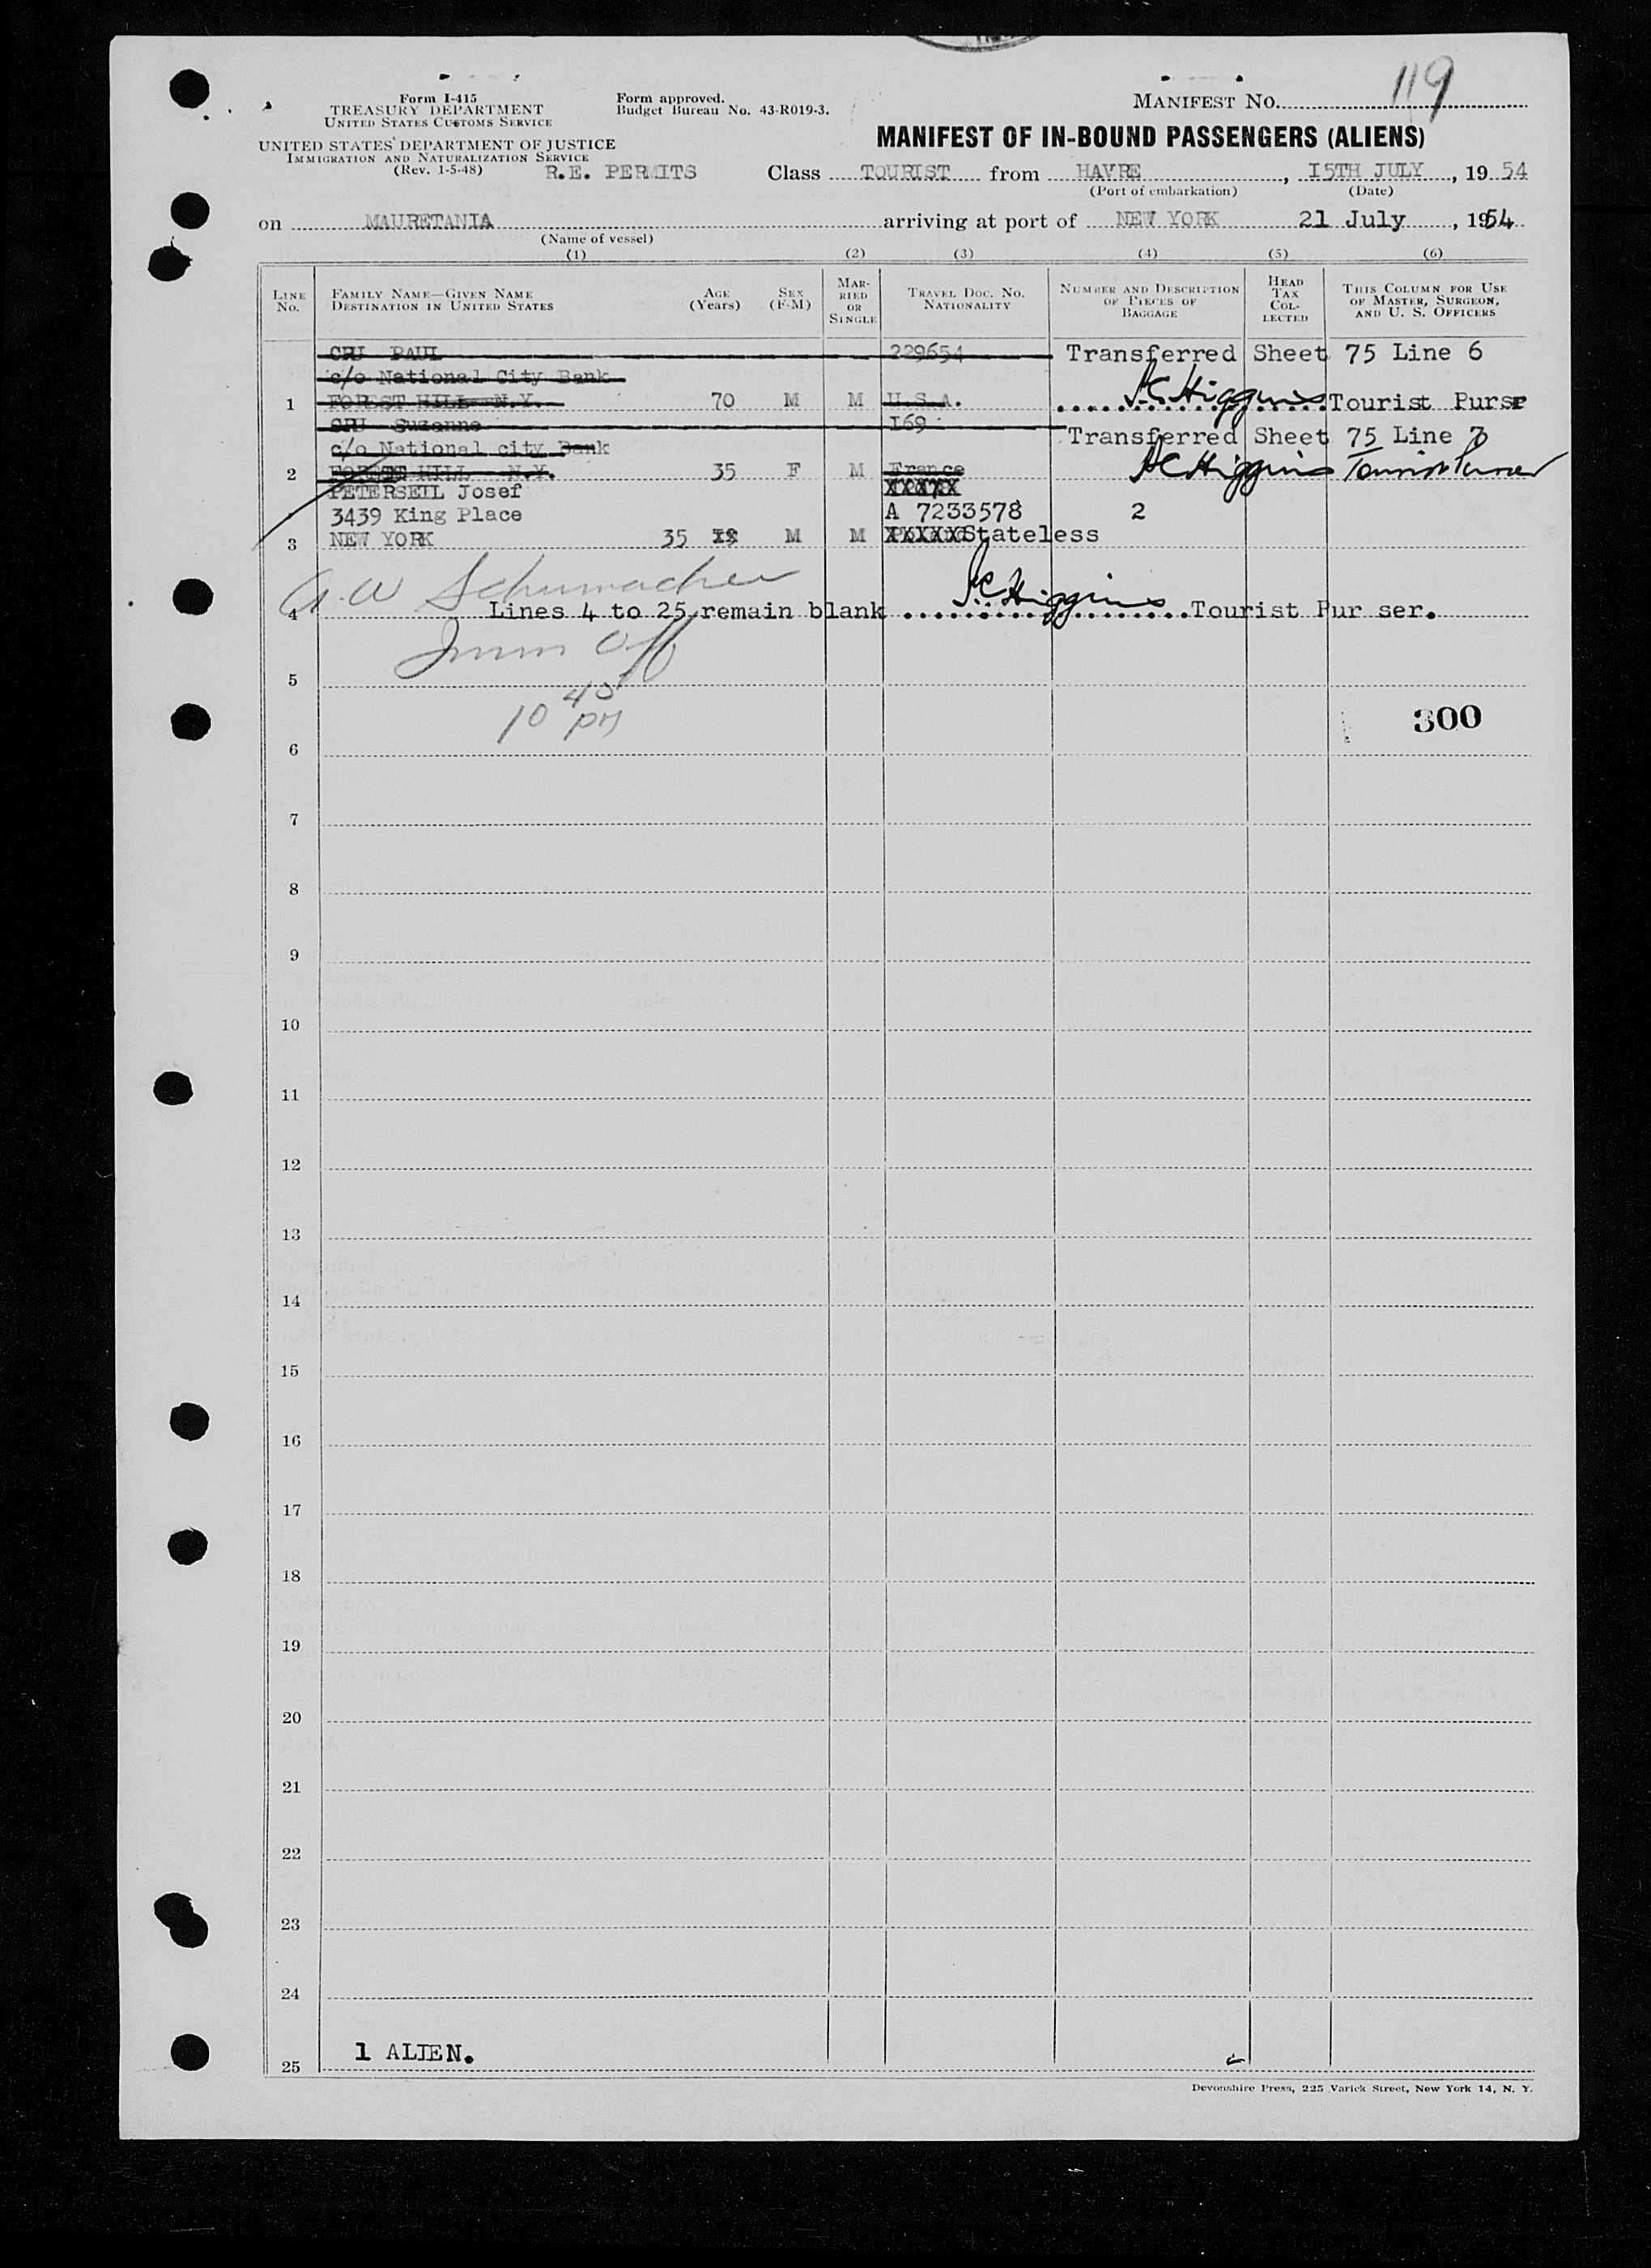 Form I-415
TREASURY DEPARTMENT
UNITED STATES CUSTOMS SERVICE
UNITED STATES DEPARTMENT OF JUSTICE
IMMIGRATION AND NATURALIZATION SERVICE
(Rev. 1-5-48)
Form approved.
Budget Bureau No. 43-R019-3.
MANIFEST NO. 119
MANIFEST OF IN-BOUND PASSENGERS (ALIENS)
R.E. PERMITS Class TOURIST from HAVRE, I5TH JULY, 1954
(Port of embarkation) (Date)
on MAURETANIA arriving at port of NEW YORK 21 July, 1954
(Name of vessel)
(1) (2) (3) (4) (5) (6)
LINE NO.
FAMILY NAME—GIVEN NAME
DESTINATION IN UNITED STATES
AGE (Years)
SEX (F-M)
MARRIED OR SINGLE
TRAVEL DOC. NO.
NATIONALITY
NUMBER AND DESCRIPTION OF PIECES OF BAGGAGE
HEAD TAX COLLECTED
THIS COLUMN FOR USE OF MASTER, SURGEON, AND U. S. OFFICERS
CRU PAUL 229654 Transferred Sheet 75 Line 6
c/o National City Bank
1 FOREST HILL N.Y. 70 M M U.S.A. Higgins Tourist Purse
CRU Suzanne I69 Transferred Sheet 75 Line 7
c/o National city Bank
2 FOREST HILL N.Y. 35 F M France Higgins Tourist Purser
PETERSEIL Josef
3439 King Place A 7233578 2
3 NEW YORK 35 M M Stateless
A. W Schumacher
4 Lines 4 to 25 remain blank Higgins Tourist Pur ser.
Imm Off
5
10 45 pm
300
6
7
8
9
10
11
12
13
14
15
16
17
18
19
20
21
22
23
24
1 ALIEN.
25
Devonshire Press, 225 Varick Street, New York 14, N. Y.